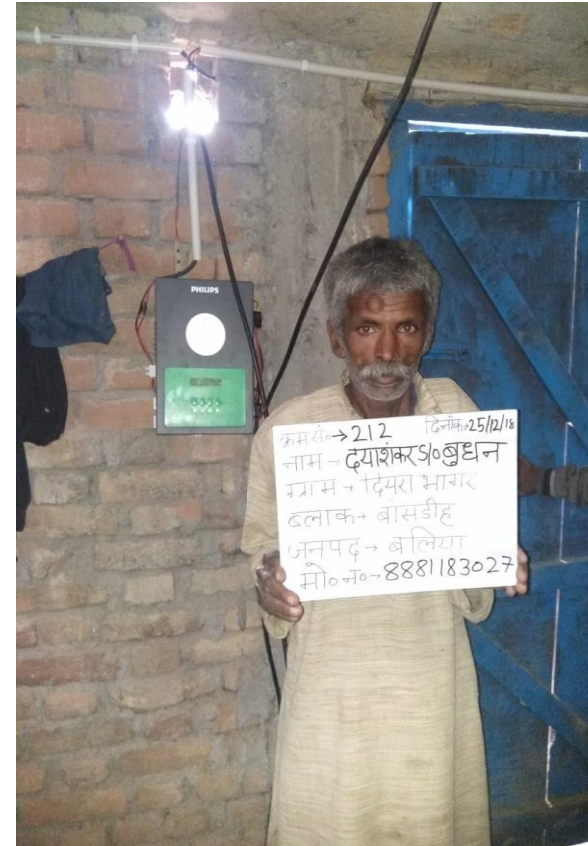 PHILIPS
क्रम सं०→212 दिनांक→25/12/18
नाम→ दयाशंकर S/० बुधन
ग्राम→ दियरा भागर
ब्लाक→ बांसडीह
जनपद→ बलिया
मो० न०→8881183027